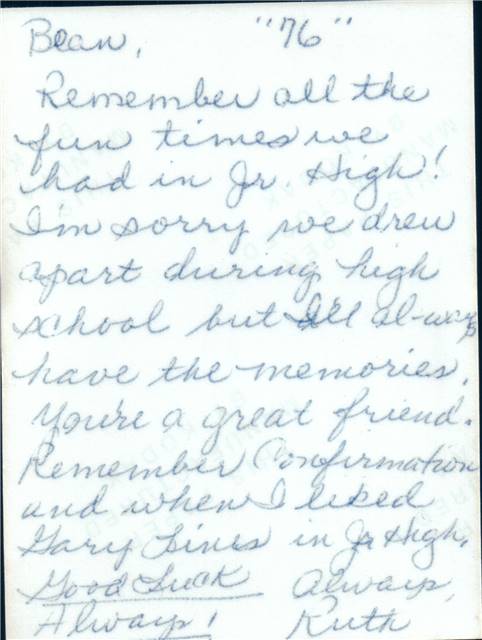 Bean, "76"
Remember all the
fun times we
had in Jr. High!
I'm sorry we drew
apart during high
school but I'll al-ways
have the memories.
You're a great friend.
Remember Confirmation
and when I liked
Gary Lines in Jr High.
Good Luck Always,
Always! Ruth